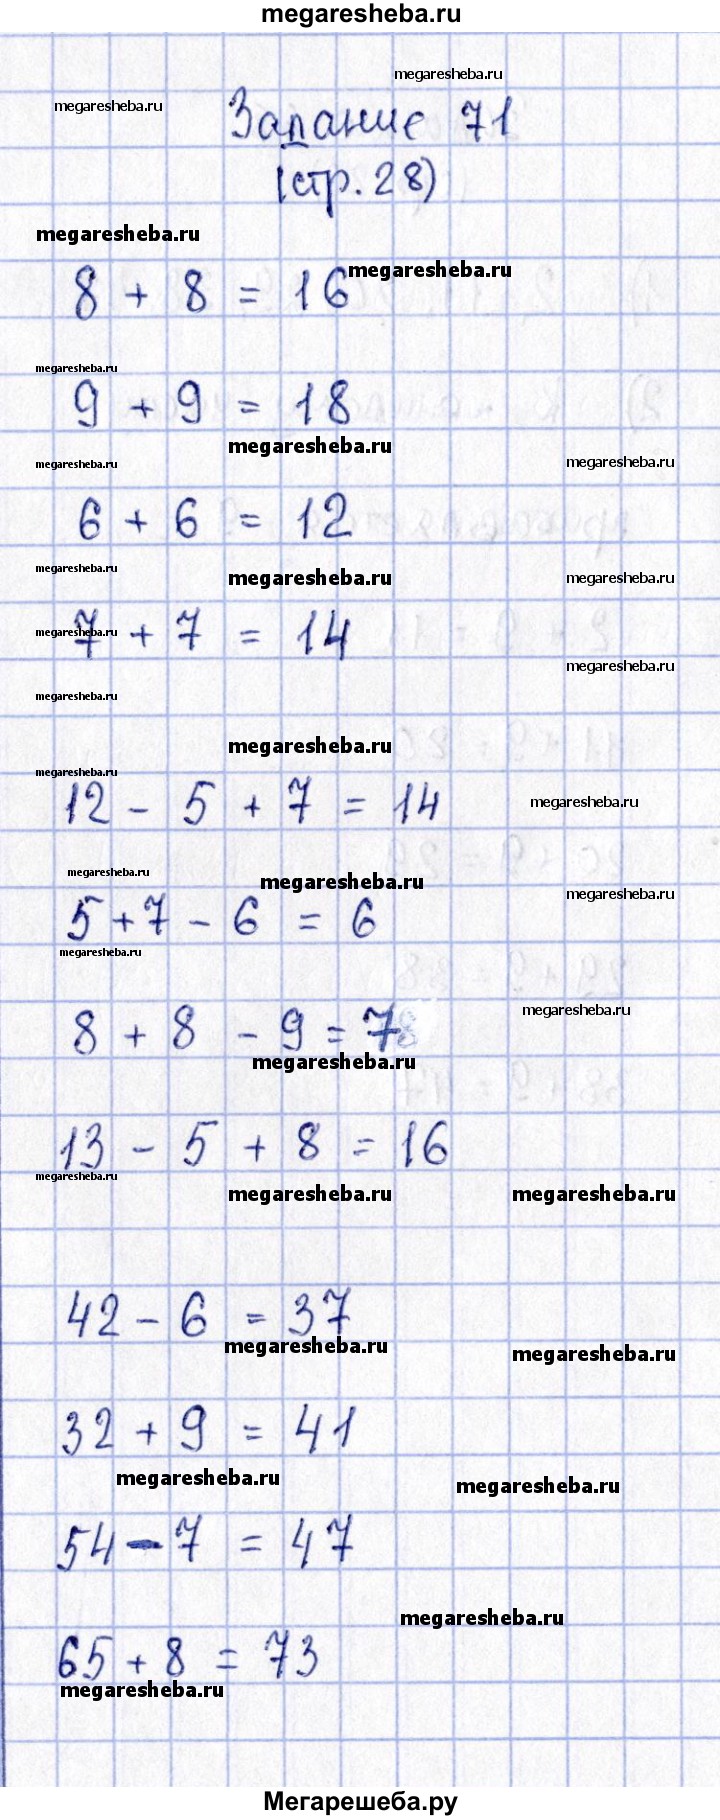 megaresheba.ru
megaresheba.ru
megaresheba.ru
Задание 71
(стр. 28)
megaresheba.ru
megaresheba.ru
8 + 8 = 16
megaresheba.ru
9 + 9 = 18
megaresheba.ru
megaresheba.ru
megaresheba.ru
6 + 6 = 12
megaresheba.ru
megaresheba.ru
megaresheba.ru
megaresheba.ru
7 + 7 = 14
megaresheba.ru
megaresheba.ru
megaresheba.ru
megaresheba.ru
12 - 5 + 7 = 14
megaresheba.ru
megaresheba.ru
megaresheba.ru
megaresheba.ru
5 + 7 - 6 = 6
megaresheba.ru
megaresheba.ru
8 + 8 - 9 = 7
megaresheba.ru
13 - 5 + 8 = 16
megaresheba.ru
megaresheba.ru
megaresheba.ru
42 - 6 = 37
megaresheba.ru
megaresheba.ru
32 + 9 = 41
megaresheba.ru
megaresheba.ru
54 - 7 = 47
megaresheba.ru
65 + 8 = 73
megaresheba.ru
Мегарешеба.ру